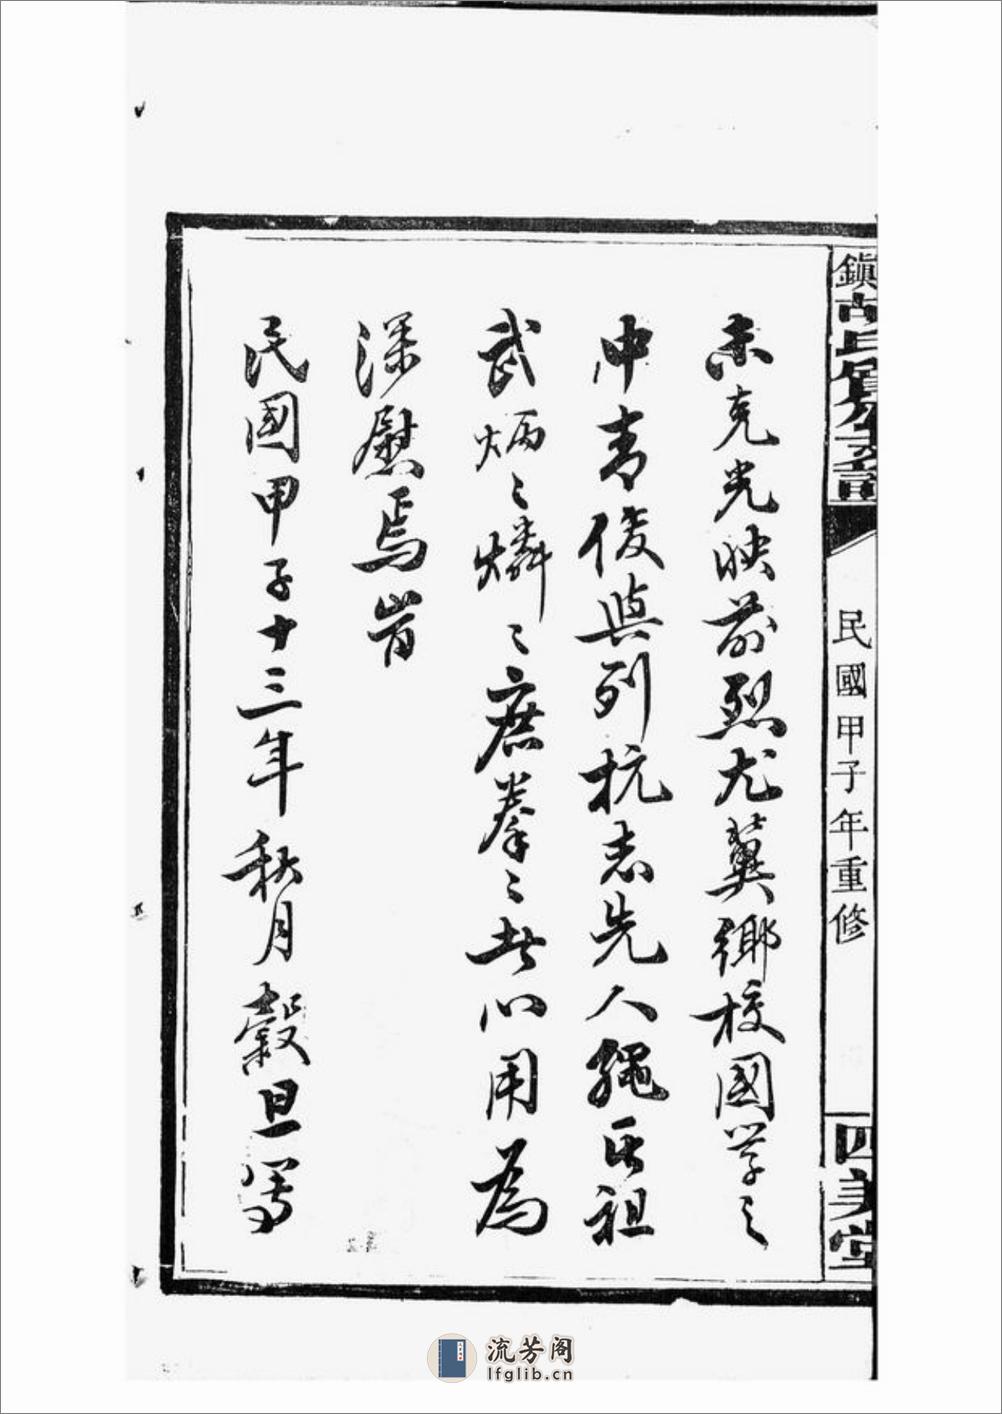 未克光映前烈尤冀鄉校國學之
中青俊與列抗志先人繩其祖
武炳〻燐〻庶拳〻此心用為
深慰焉耑
民國甲子十三年秋月穀旦寫
鎮胡氏
民國甲子年重修
四美堂
流芳阁
lfglib.cn